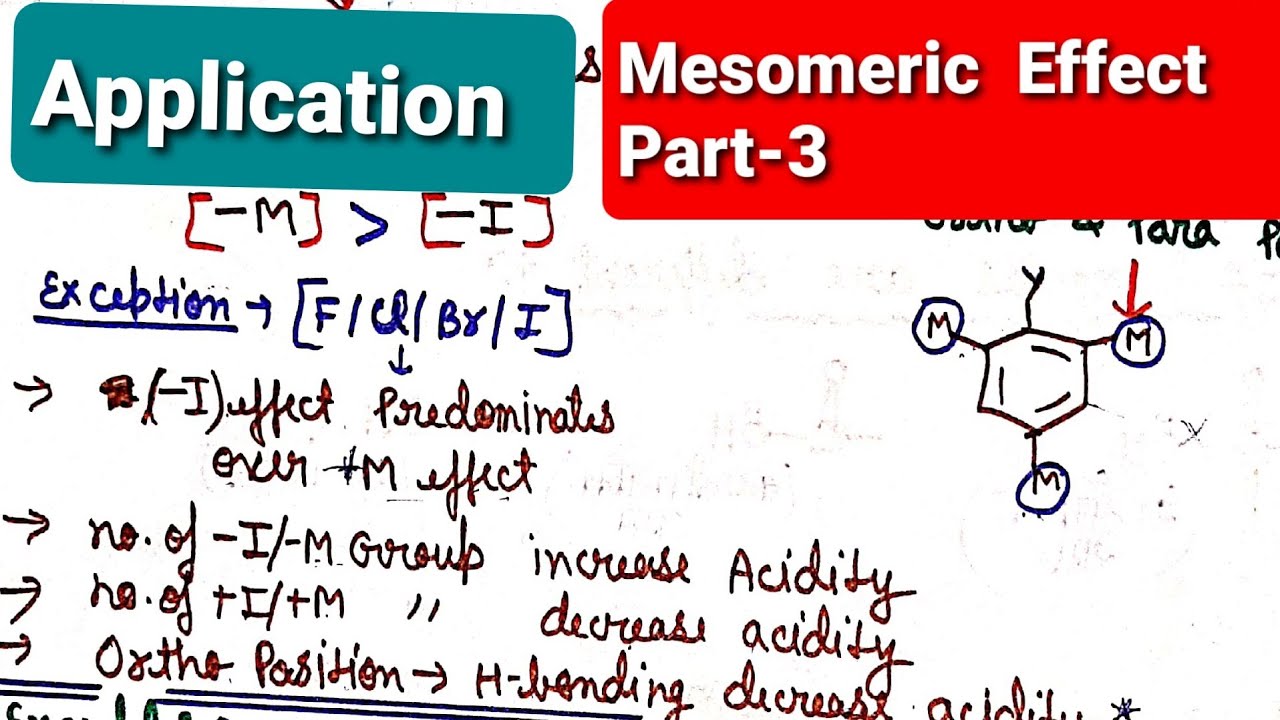 Application
s
Mesomeric Effect
Part-3
[-M] > [-I]
& Para
Exception → [F/Cl/Br/I]
↓
Y
M
M
M
→ (-I) effect Predominates
over +M effect
→ no. of -I/-M Group increase Acidity
→ no. of +I/+M " decrease acidity
→ Ortho Position → H-bonding decrease acidity *